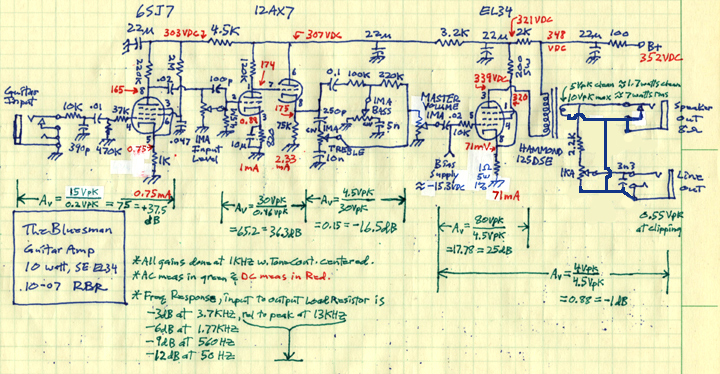 6SJ7 12AX7 EL34
22µ 303VDC 4.5K 307VDC 22µ 3.2K 22µ 321VDC 2K 348 VDC 22µ 100 B+ 352VDC
220K 2M 130K 174 339VDC 320 5W
165 .02 100p 0.1 100K 220K
Guitar Input
10K .01 37K 390p 470K
0.75 1K .047
1MA Input Level
0.88 10µ 1mA
175 75K 2.33 mA
250p 1MA BASS 5n
1MA TREBLE 10n
MASTER VOLUME 1MA .02 10K
Bias Supply ≈ -15.3VDC
71mV 1Ω 5W 1% 71mA
HAMMOND 125DSE
5Vpk clean ≈ 1.7watts clean
10Vpk max ≈ 7watts max
Speaker out 8Ω
2.2K 1KA 3n3
Line out
0.55Vpk at clipping
Av = 15Vpk / 0.2Vpk = 75 = +37.5 dB
0.75mA
Av = 30Vpk / 0.46Vpk
= 65.2 = 36.3dB
Av = 4.5Vpk / 30Vpk
= 0.15 = -16.5dB
Av = 80Vpk / 4.5Vpk
= 17.78 = 25dB
Av = 4Vpk / 4.5Vpk
= 0.88 = -1dB
The Bluesman
Guitar Amp
10 watt, SE EL34
10-07 RBR
* All gains done at 1KHz w. Tone Cont. centered.
* AC meas in green & DC meas in Red.
* Freq Response, input to output Load Resistor is
-3dB at 3.7KHz, rel to peak at 13KHz
-6dB at 1.77KHz
-9dB at 560Hz
-12dB at 50Hz